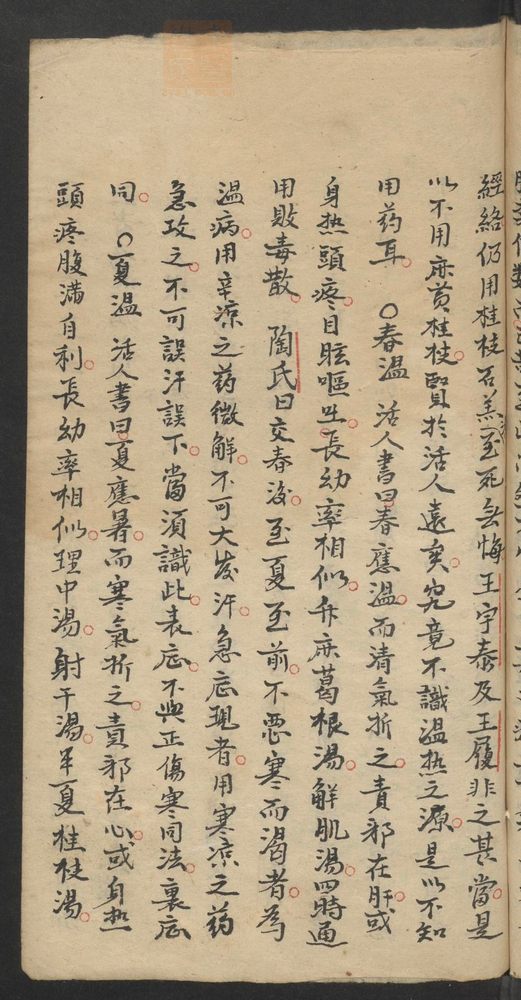 經絡仍用桂枝石羔至死無悔王宇泰及王履非之甚當是
以不用麻黃桂枝賢於活人遠矣究竟不識溫热之源是以不知
用药耳 〇春溫 活人書曰春應溫而清氣折之責邪在肝或
身热頭疼目眩嘔吐長幼率相似升麻葛根湯解肌湯四時通
用敗毒散 陶氏曰交春後至夏至前不惡寒而渴者為
溫病用辛凉之药微解不可大发汗急症現者用寒凉之药
急攻之不可誤汗誤下當須識此表症不與正傷寒同法裏症
同 〇夏溫 活人書曰夏應暑而寒氣折之責邪在心或身热
頭疼腹滿自利長幼率相似理中湯射干湯半夏桂枝湯